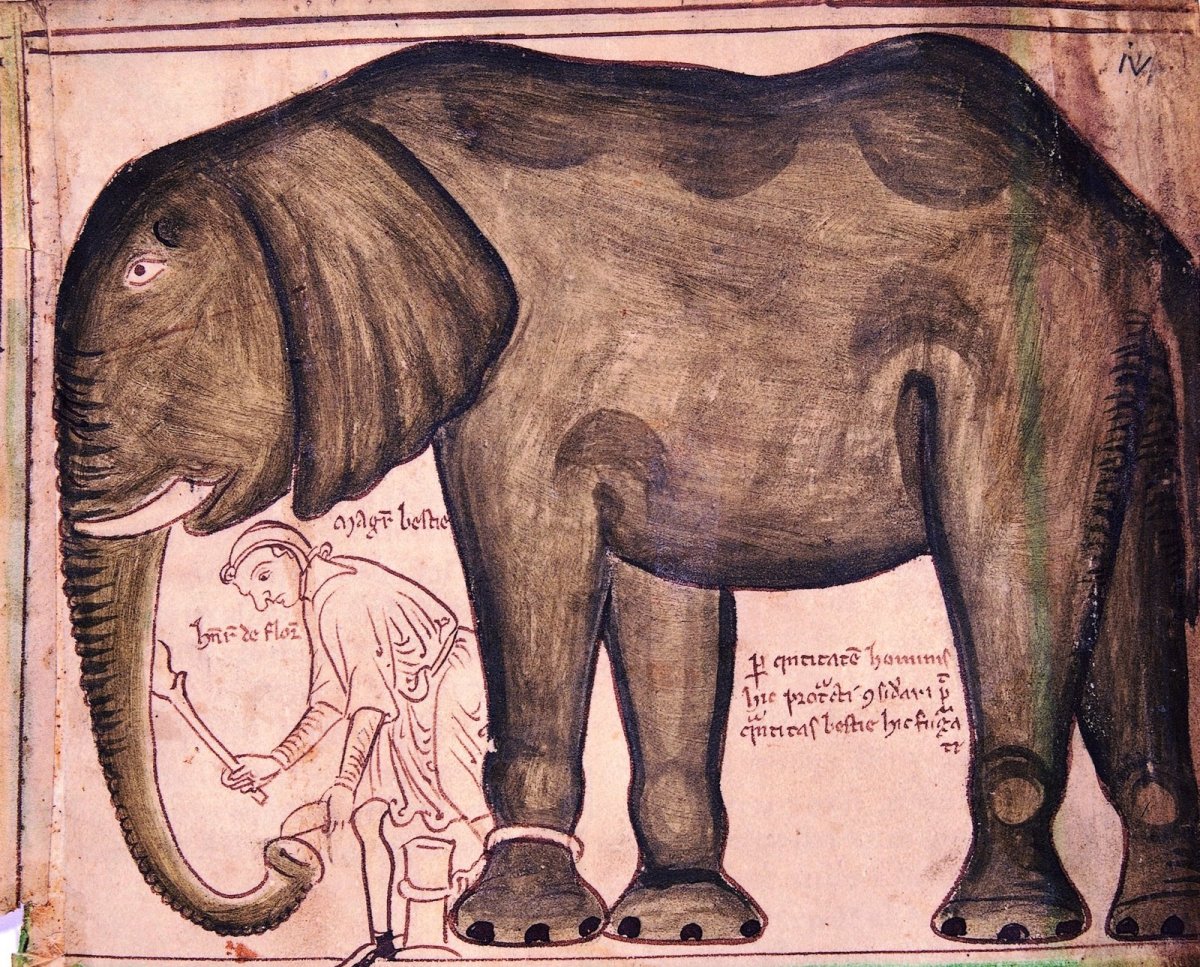 iv
magr̄ bestie
hn̄r̄ de flor̄
p̱ qn̄titatē hominis
hic protͣcti ꝯsid̓ari p̄
qͣntitas bestie hic figͣa
ti